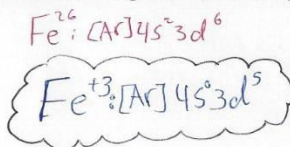 Fe²⁶: [Ar] 4s² 3d⁶
Fe⁺³: [Ar] 4s⁰ 3d⁵